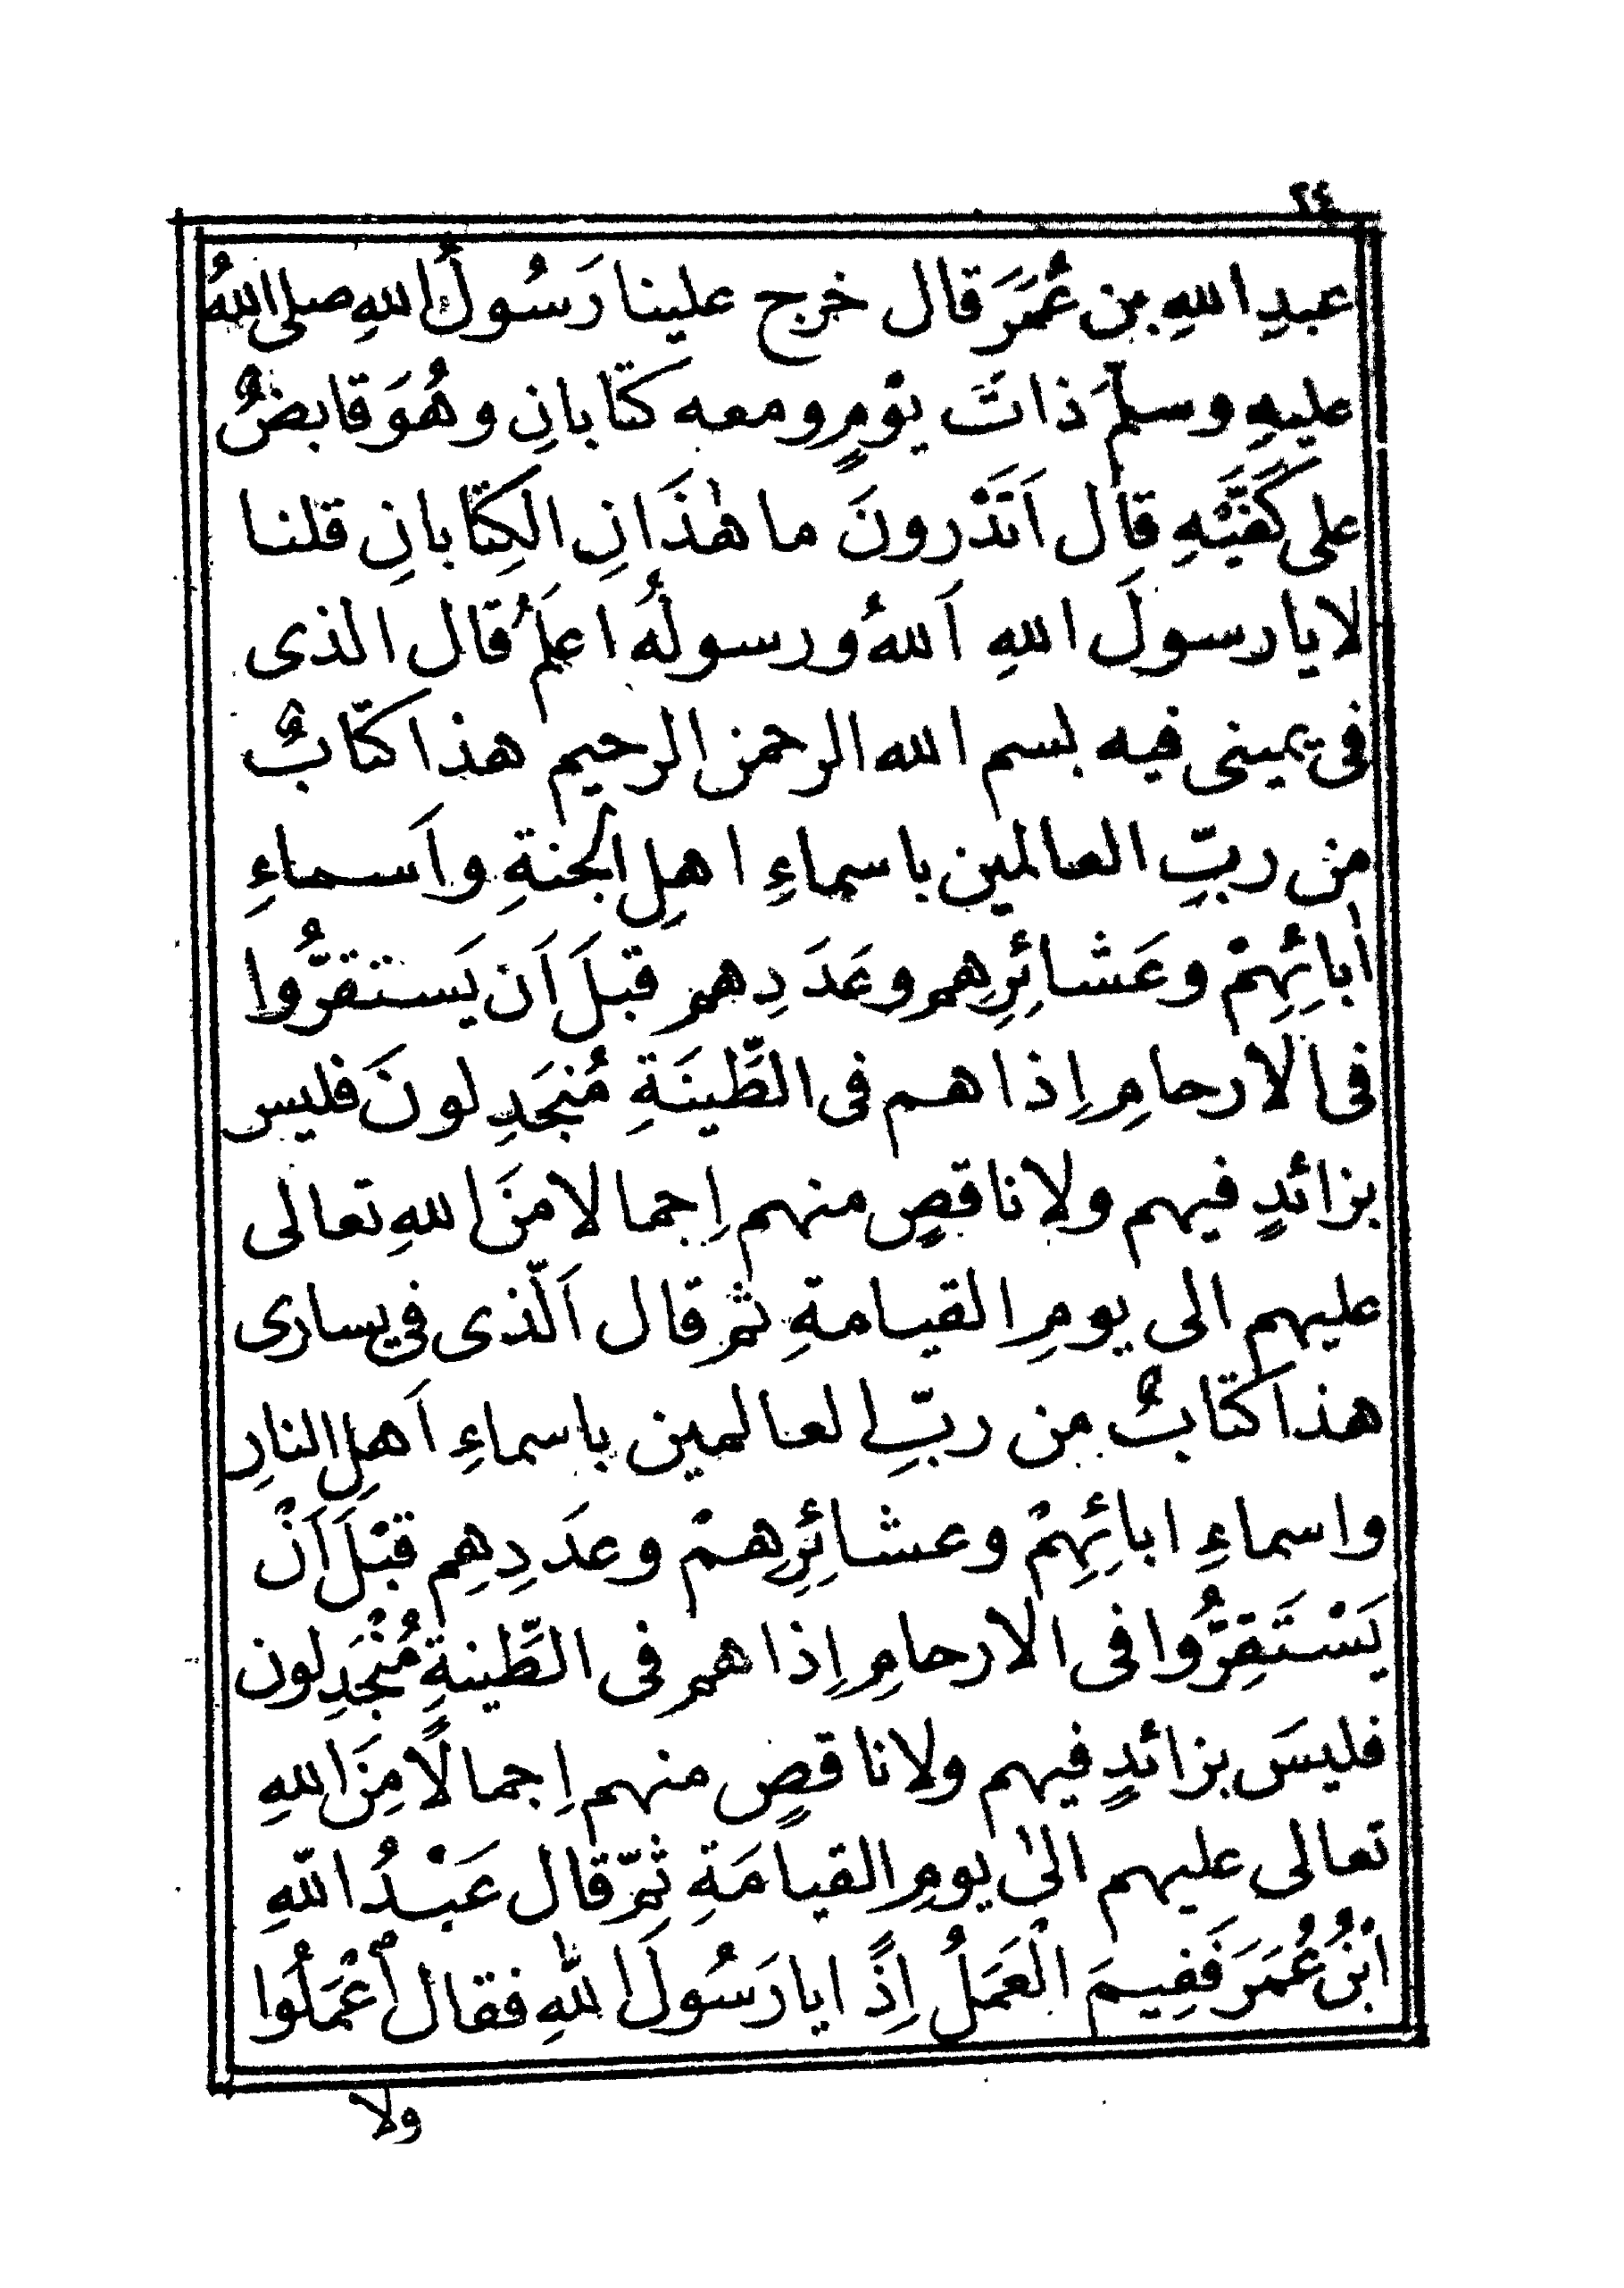 ٢٤
عبدِ اللهِ بن عُمَرَ قال خرج علينا رَسُولُ اللهِ صلى اللهُ
عليهِ وسلمَ ذاتَ يوْمٍ ومعه كتابانِ وهُوَ قابضٌ
على كَفَّيْهِ قال اَتَدْرونَ ما هٰذَانِ الكِتابانِ قلنا
لا يا رسولَ اللهِ اَللهُ ورسولُه اعلَمُ قال الذى
فى يمينى فيه بسم الله الرحمن الرحيم هذا كتابٌ
من ربِّ العالمين باسماءِ اهلِ الجنةِ واَسماءِ
اٰبائِهِمْ وعَشائِرِهم وعَدَدِهم قبلَ اَن يَستقرُّوا
فى الارحامِ اِذا هم فى الطِّينَةِ مُنجَدِلونَ فليس
بزائدٍ فيهم ولا ناقصٍ منهم اِجمالا منَ اللهِ تعالى
عليهم الى يومِ القيامةِ ثم قال اَلّذى فى يسارى
هذا كتابٌ من ربِّ العالمين باسماءِ اَهلِ النارِ
واسماءِ ابائِهِمْ وعشائِرِهمْ وعدَدِهِم قبْلَ اَنْ
يَسْتَقِرُّوا فى الارحامِ اِذا هم فى الطِّينةِ مُنْجَدِلون
فليسَ بزائدٍ فيهم ولا ناقصٍ منهم اِجمالًا مِنَ اللهِ
تعالى عليهم الىٰ يومِ القيامَةِ ثمّ قال عَبْدُ اللهِ
ابْنُ عُمَرَ فَفِيمَ الْعَمَلُ اِذًا يا رَسُولَ اللهِ فقال اعْمَلُوا
ولا